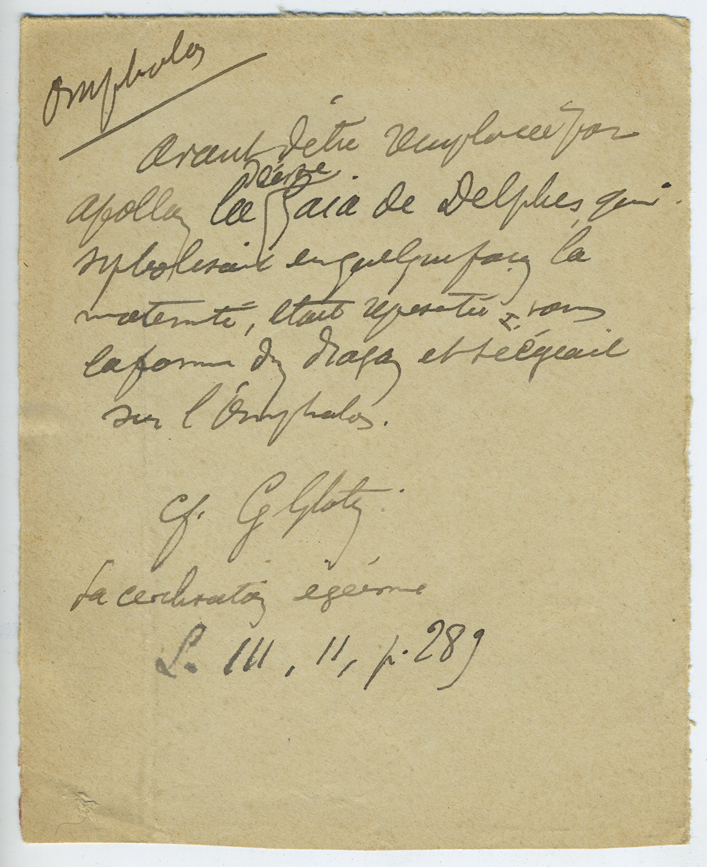 Omphalos
avant d'être remplacée par
Apollon la déesse Gaia de Delphes, qui
sybolisait en quelque façon la
maternité, était représentée sous
la forme du dragon et siégeait
sur l'Omphalos.
cf. G Glotz.
La civilisation égéenne
L. III, II, p. 289